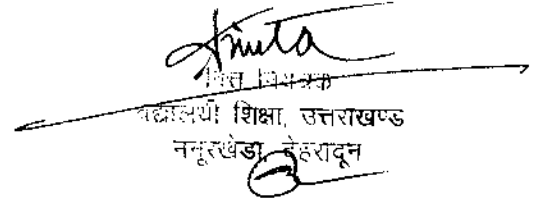 Anita
वित्त नियंत्रक
विद्यालयी शिक्षा, उत्तराखण्ड
ननूरखेडा, देहरादून